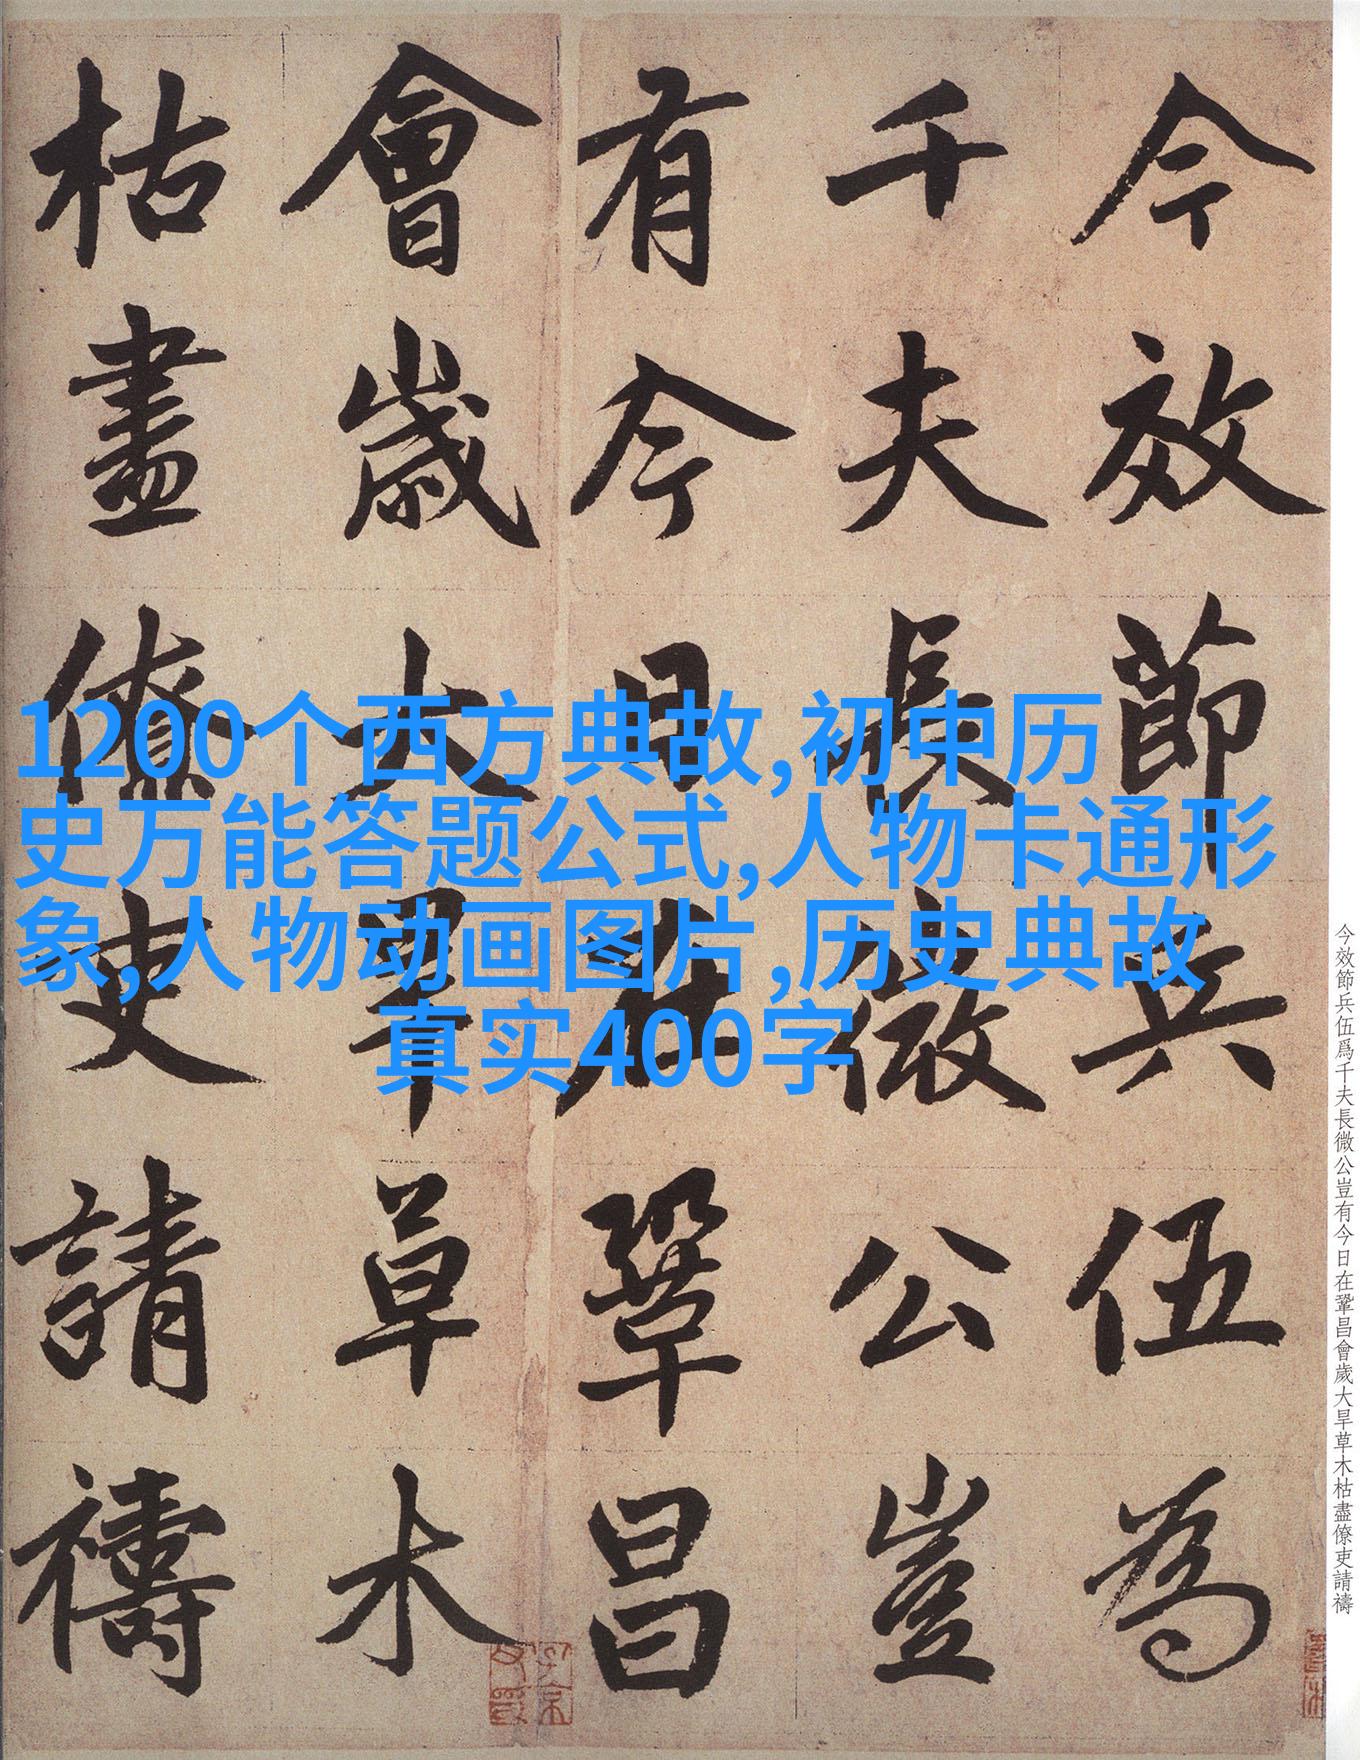 今效節兵伍為
千夫長微公豈
有今日在鞏昌
會歲大旱草木
枯盡僚吏請禱
1200个西方典故,初中历
史万能答题公式,人物卡通形
象,人物动画图片,历史典故
真实400字
今效節兵伍爲千夫長微公豈有今日在鞏昌會歲大旱草木枯盡僚吏請禱